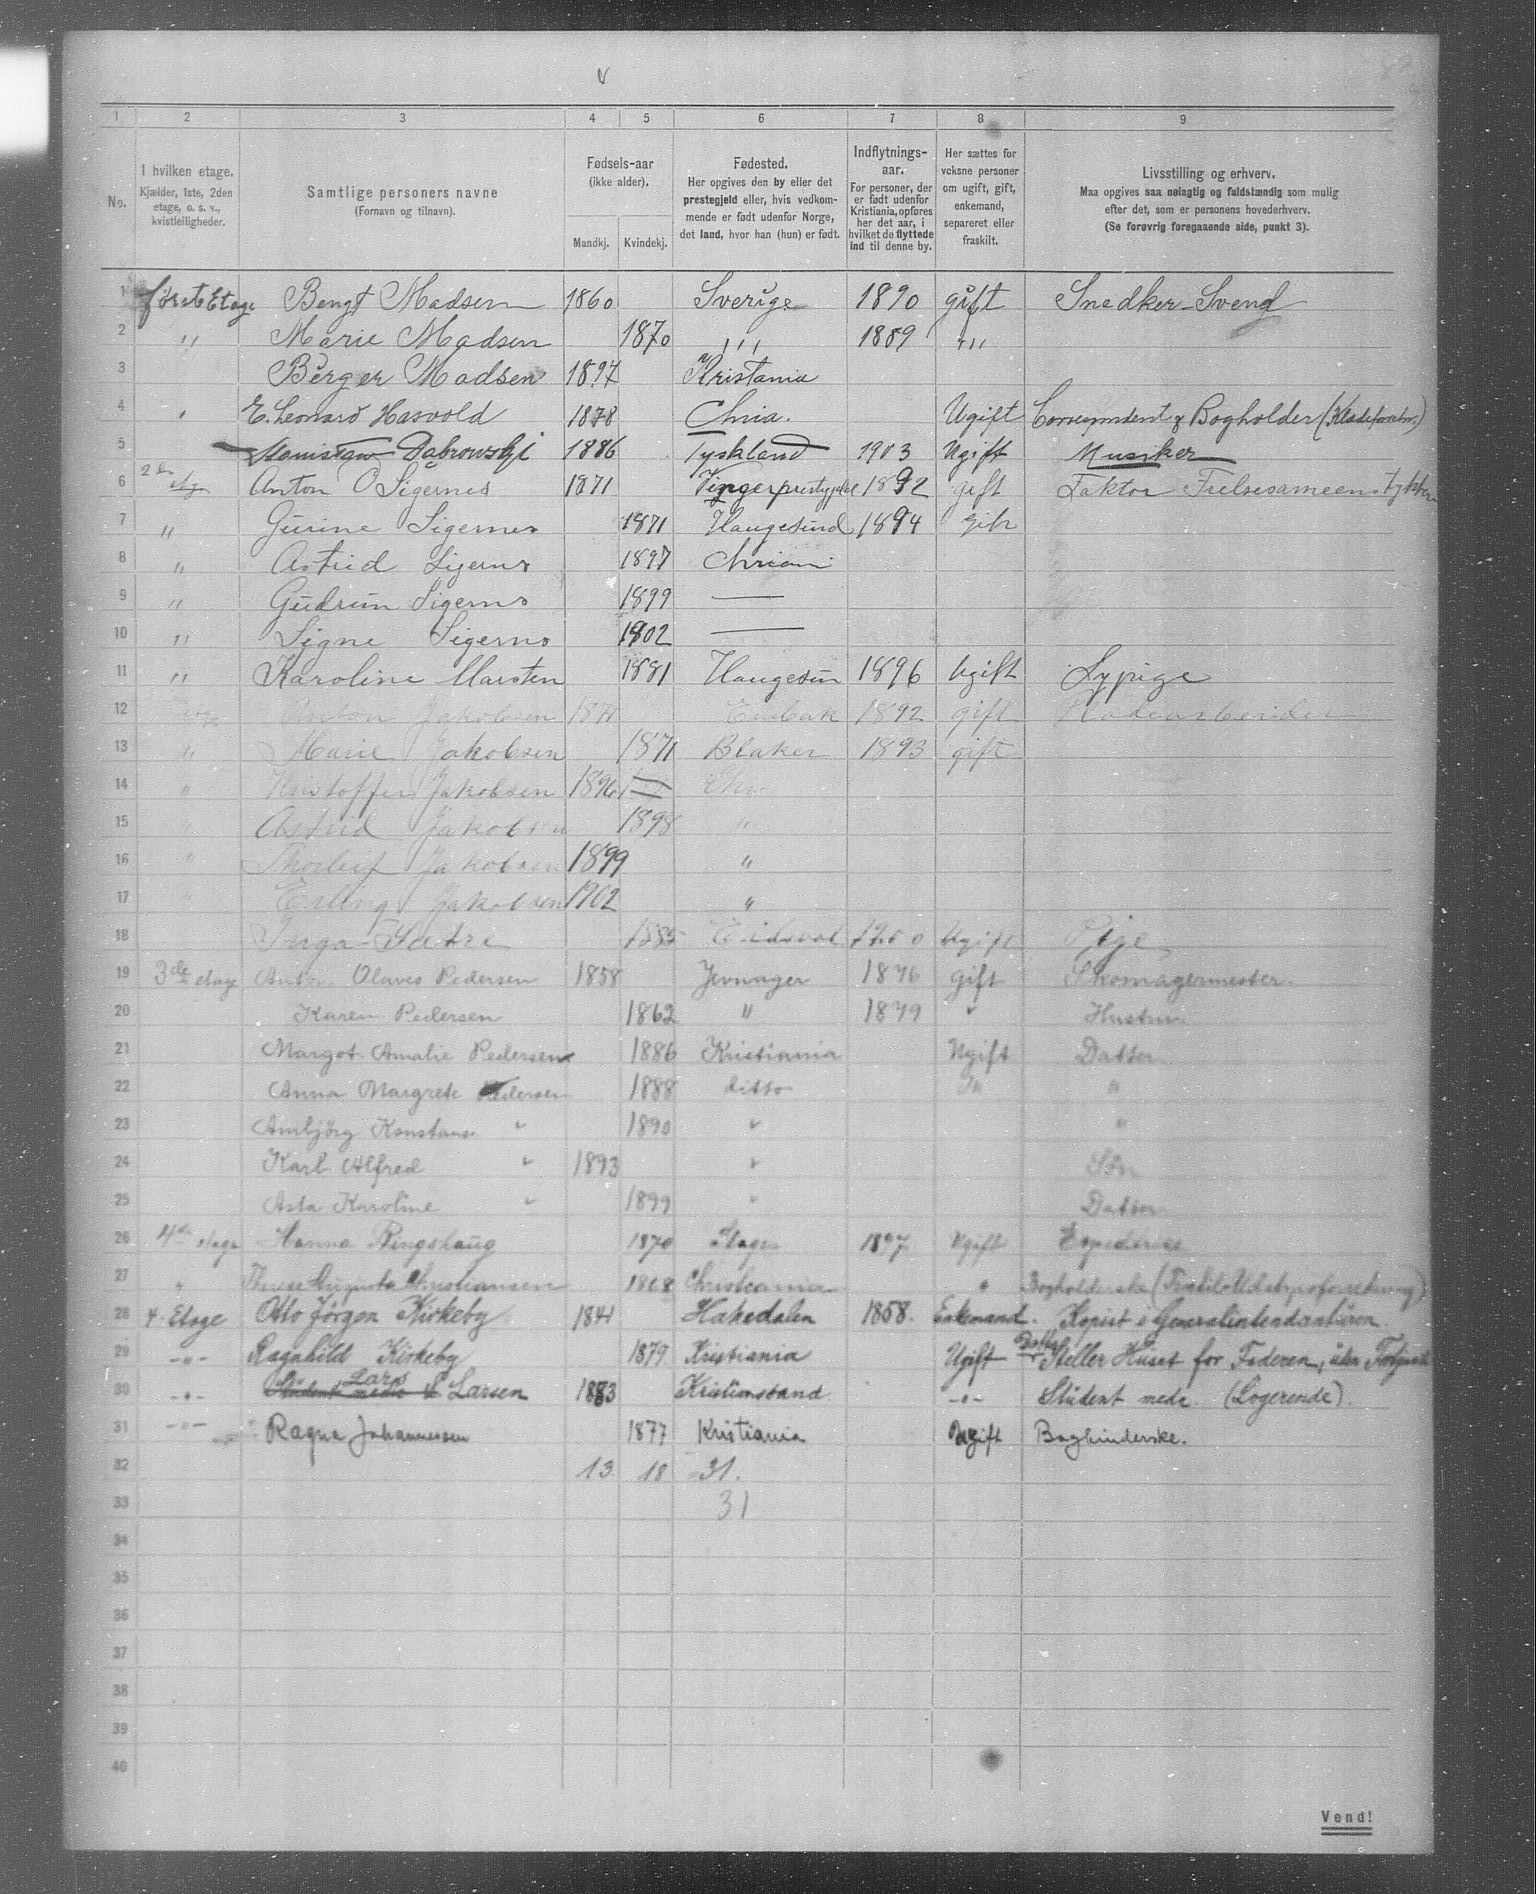 1 2 3 4 5 6 7 8 9
No.
I hvilken etage. Kjælder, 1ste, 2den etage, o. s. v., kvistleiligheder.
Samtlige personers navne (Fornavn og tilnavn).
Fødsels-aar (ikke alder). Mandkj. Kvindekj.
Fødested. Her opgives den by eller det prestegjeld eller, hvis vedkommende er født udenfor Norge, det land, hvor han (hun) er født.
Indflytnings-aar. For personer, der er født udenfor Kristiania, opføres her det aar, i hvilket de flyttede ind til denne by.
Her sættes for voksne personer om ugift, gift, enkemand, separeret eller fraskilt.
Livsstilling og erhverv. Maa opgives saa nøiagtig og fuldstændig som mulig efter det, som er personens hovederhverv. (Se forøvrig foregaaende side, punkt 3).
1 første Etage Bengt Madsen 1860 Sverige 1890 gift Snedker-Svend
2 " Marie Madsen 1870 " 1889 "
3 Berger Madsen 1897 Kristania
4 " E. Leonard Hasvold 1878 Chria. Ugift Correspondent & Bogholder
5 Stanislaw Dabrowski 1886 Tyskland 1903 Ugift Musiker
6 2den Anton O Sigernes 1871 1892 gift Faktor
7 " Gurine Sigernes 1871 Haugesund 1894 Gift
8 " Astrid Sigerns 1897
9 " Gudrun Sigerns 1899 —
10 " Signe Sigerns 1902 —
11 " Karoline Marsten 1881 Haugesun 1896 Ugift Sypige
12 Anton Jakobsen 1871 Enebak 1892 gift Pladearbeider
13 " Marie Jakobsen 1871 Blaker 1893 gift
14 " Kristoffer Jakobsen 1896
15 " Astrid Jakobsen 1898 "
16 " Thorleif Jakobsen 1899 "
17 " Erling Jakobsen 1902 "
18 Inga Sætre 1885 Eidsvol 1900 Ugift Pige
19 3die etage Anton Olaves Pedersen 1858 Jevnager 1876 Gift Skomagermester.
20 Karen Pedersen 1862 " 1879 " Hustru
21 Margot Amalie Pedersen 1886 Kristiania Ugift Datter
22 Anna Margrete Pedersen 1888 ditto "
23 Ambjörg Konstanse " 1890 " "
24 Karl Alfred " 1893 " Sön
25 Asta Karoline " 1899 " Datter
26 4de etage Hanna Ringshaug 1870 1897 Ugift
27 " Therese Augusta Christiansen 1868 Christiania " Bogholderske
28 4. Etage Otto Jørgen Kirkeby 1841 Hakedalen 1858. Enkemand. Kopist i Generalintendanturen.
29 –"– Ragnhild Kirkeby 1879 Kristiania Ugift Datter Steller Huset for Faderen,
30 –"– Student medic Lars Larsen 1883 Kristianssand –"– Student medc. (Logerende).
31 –"– Ragna Johannessen 1877 Kristiania Ugift Bogbinderske.
32 13 18 31.
33 31
34
35
36
37
38
39
40
Vend!